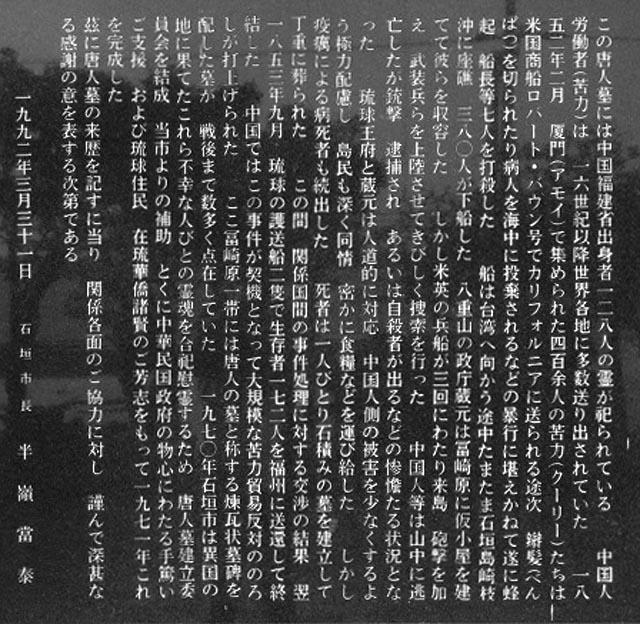 この唐人墓には中国福建省出身者一二八人の霊が祀られている　中国人
労働者(苦力)は　一六世紀以降世界各地に多数送り出されていた　一八
五二年二月　厦門(アモイ)で集められた四百余人の苦力(クーリー)たちは
米国商船ロバート・バウン号でカリフォルニアに送られる途次　辮髪(べん
ぱつ)を切られたり病人を海中に投棄されるなどの暴行に堪えかねて遂に蜂
起　船長等七人を打殺した　船は台湾へ向かう途中たまたま石垣島崎枝
沖に座礁　三八〇人が下船した　八重山の政庁蔵元は冨崎原に仮小屋を建
てて彼らを収容した　しかし米英の兵船が三回にわたり来島　砲撃を加
え　武装兵らを上陸させてきびしく捜索を行った　中国人等は山中に逃
亡したが銃撃　逮捕され　あるいは自殺者が出るなどの惨憺たる状況とな
った　琉球王府と蔵元は人道的に対応　中国人側の被害を少なくするよ
う極力配慮し　島民も深く同情　密かに食糧などを運び給した　しかし
疫癘による病死者も続出した　死者は一人びとり石積みの墓を建立して
丁重に葬られた　この間　関係国間の事件処理に対する交渉の結果　翌
一八五三年九月　琉球の護送船二隻で生存者一七二人を福州に送還して終
結した　中国ではこの事件が契機となって大規模な苦力貿易反対ののろ
しが打上げられた　ここ冨崎原一帯には唐人の墓と称する煉瓦状墓碑を
配した墓が　戦後まで数多く点在していた　一九七〇年石垣市は異国の
地に果てたこれら不幸な人びとの霊魂を合祀慰霊するため　唐人墓建立委
員会を結成　当市よりの補助　とくに中華民国政府の物心にわたる手篤い
ご支援　および琉球住民　在琉華僑諸賢のご芳志をもって一九七一年これ
を完成した
茲に唐人墓の来歴を記すに当り　関係各面のご協力に対し　謹んで深甚な
る感謝の意を表する次第である
一九九二年三月三十一日　石垣市長　半嶺當泰